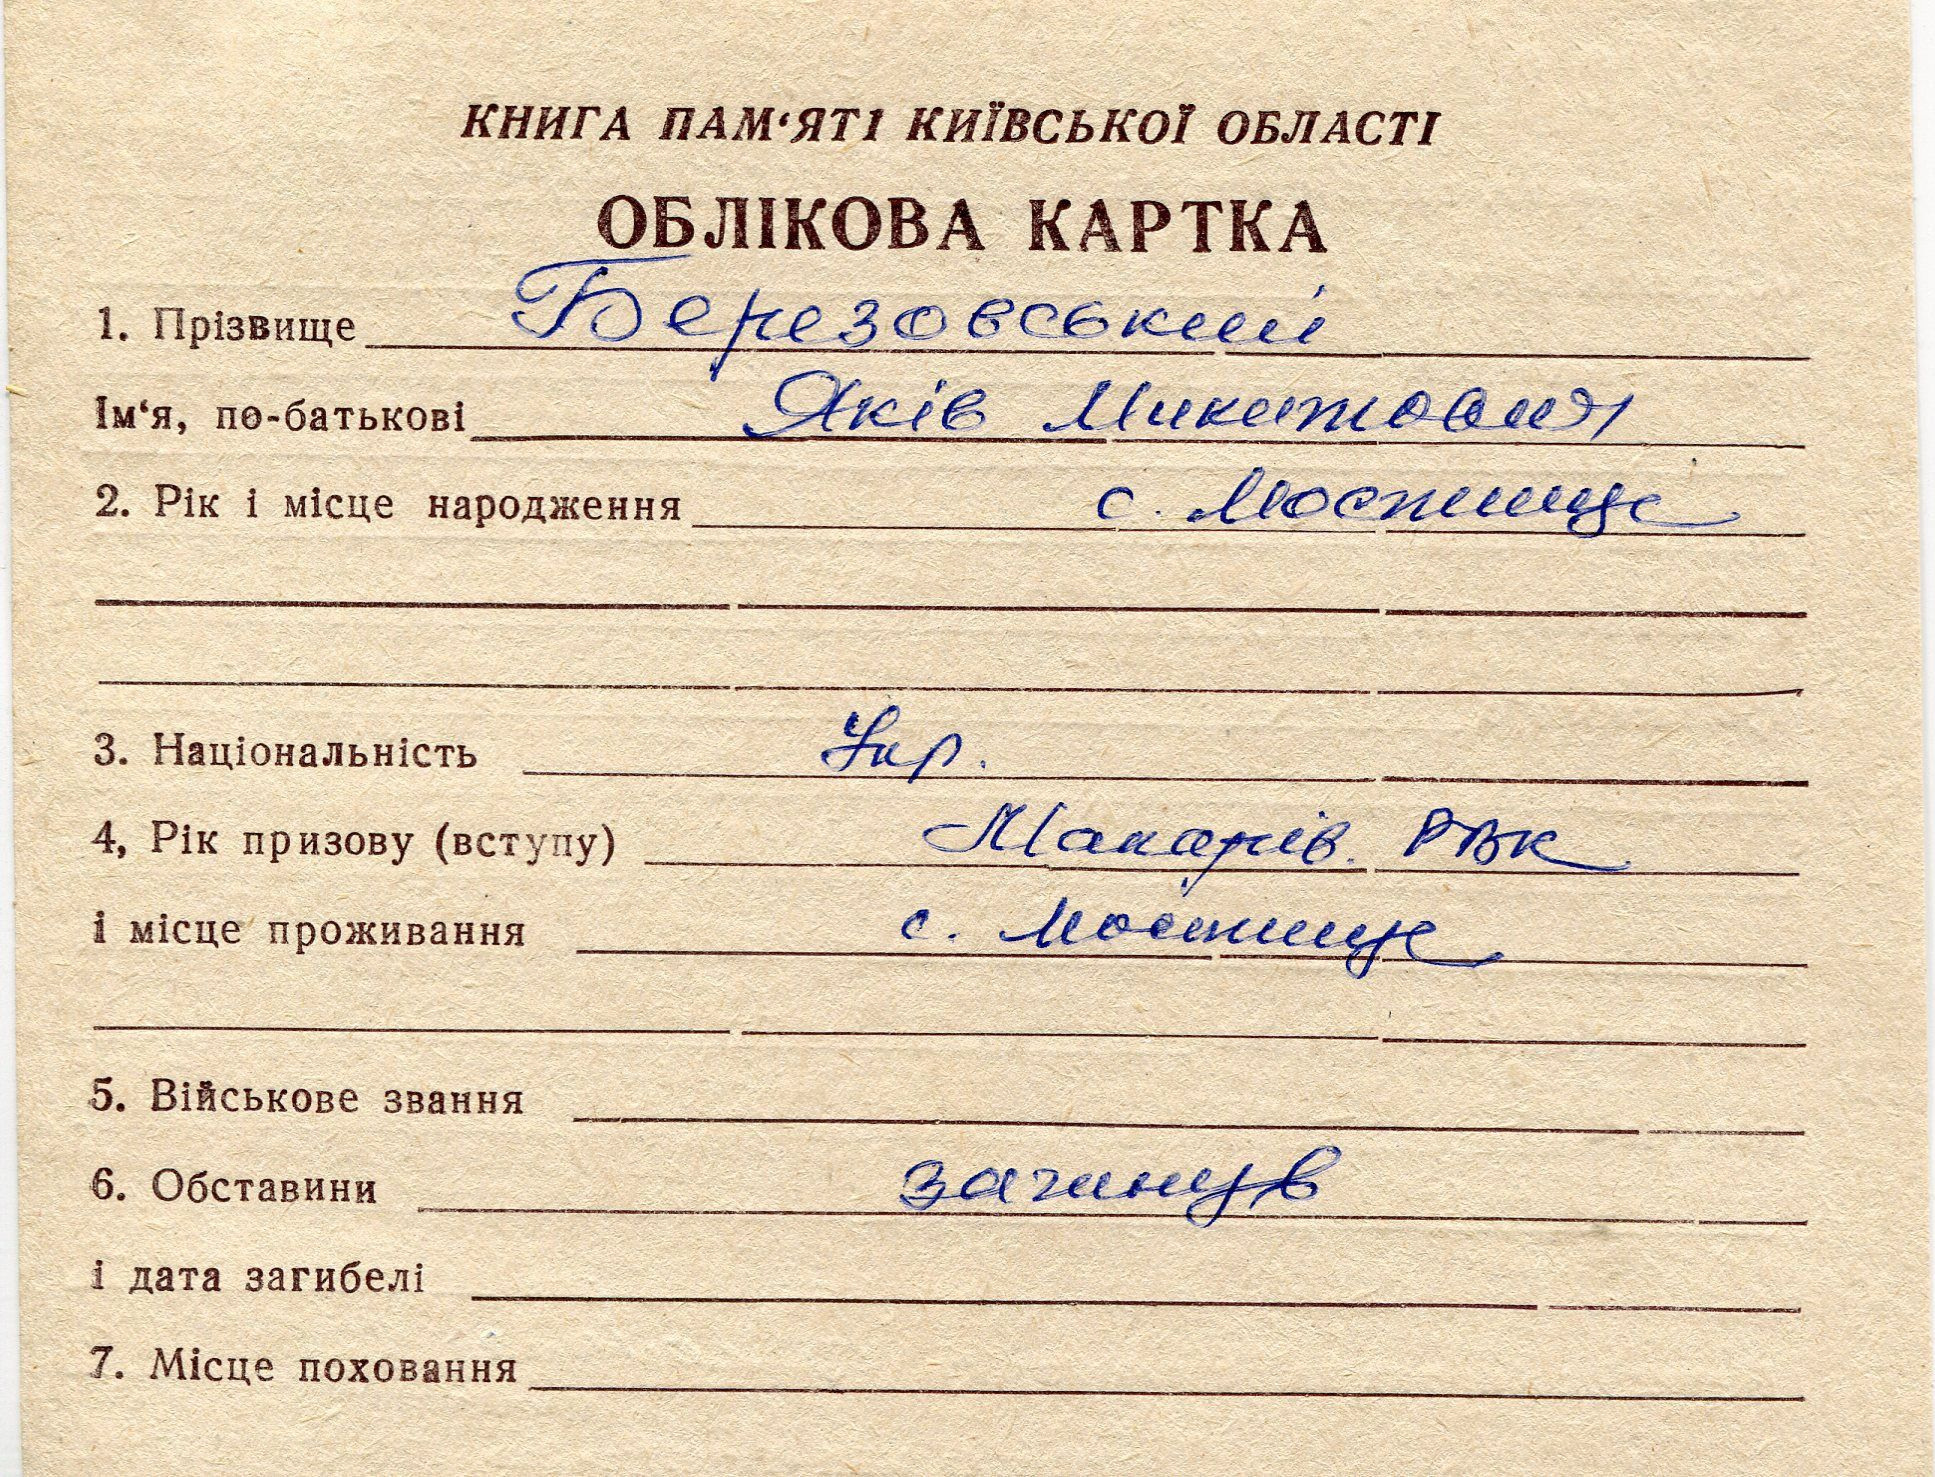 КНИГА ПАМ‘ЯТІ КИЇВСЬКОЇ ОБЛАСТІ
ОБЛІКОВА КАРТКА
1. Прізвище Березовський
Ім‘я, по-батькові Яків Микитович
2. Рік і місце народження с. Мостище
3. Національність Укр.
4, Рік призову (вступу) Макарів. РВК
і місце проживання с. Мостище
5. Військове звання
6. Обставини загинув
і дата загибелі
7. Місце поховання